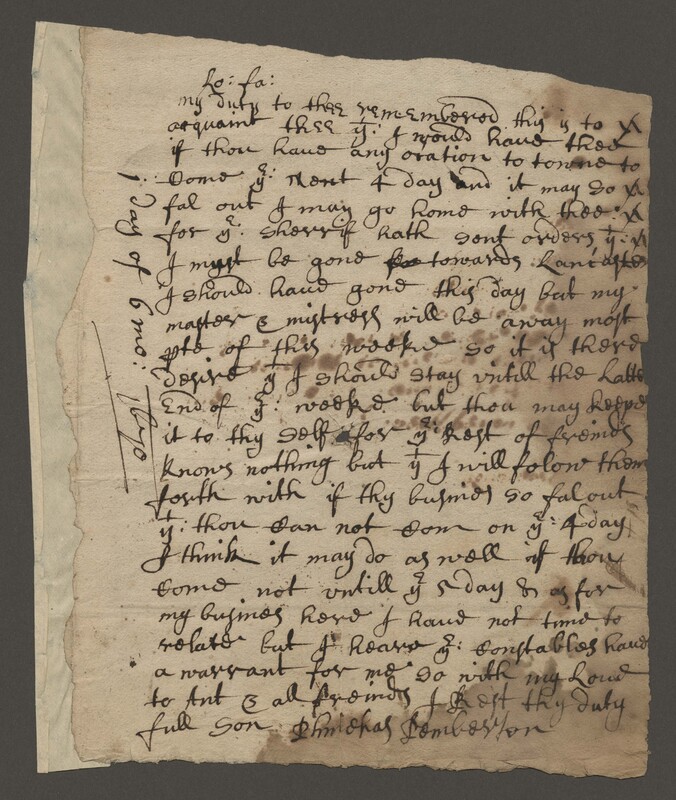 Lo: fa:
my duty to thee remembered this is to
acquaint thee yt: I would have thee
if thou have any ocation to towne to
Come ye: Next 4 day and it may so
fal out I may go home with thee:
for ye: Sherrif hath sent orders yt:
I must be gone towards Lancaster
I should have gone this day but my
master & mistress will be away most
pte of this weeke so it is there
desire yt I should stay untill the Latte
End of ye: weeke but thou may keepe
it to thy self for ye: Rest of freinds
knows nothing but yt I will folow them
forth with if thy busines so fal out
yt: thou Can not Com on ye: 4 day
I think it may do as well if thou
Come not untill ye 5 day & as for
my busines here I have not time to
relate but I heare ye: Constables have
a warrant for me so with my Love
to Ant & all freinds I Rest thy duty
full son Phinehas Pemberton
1 Day of 6 mo: 1670